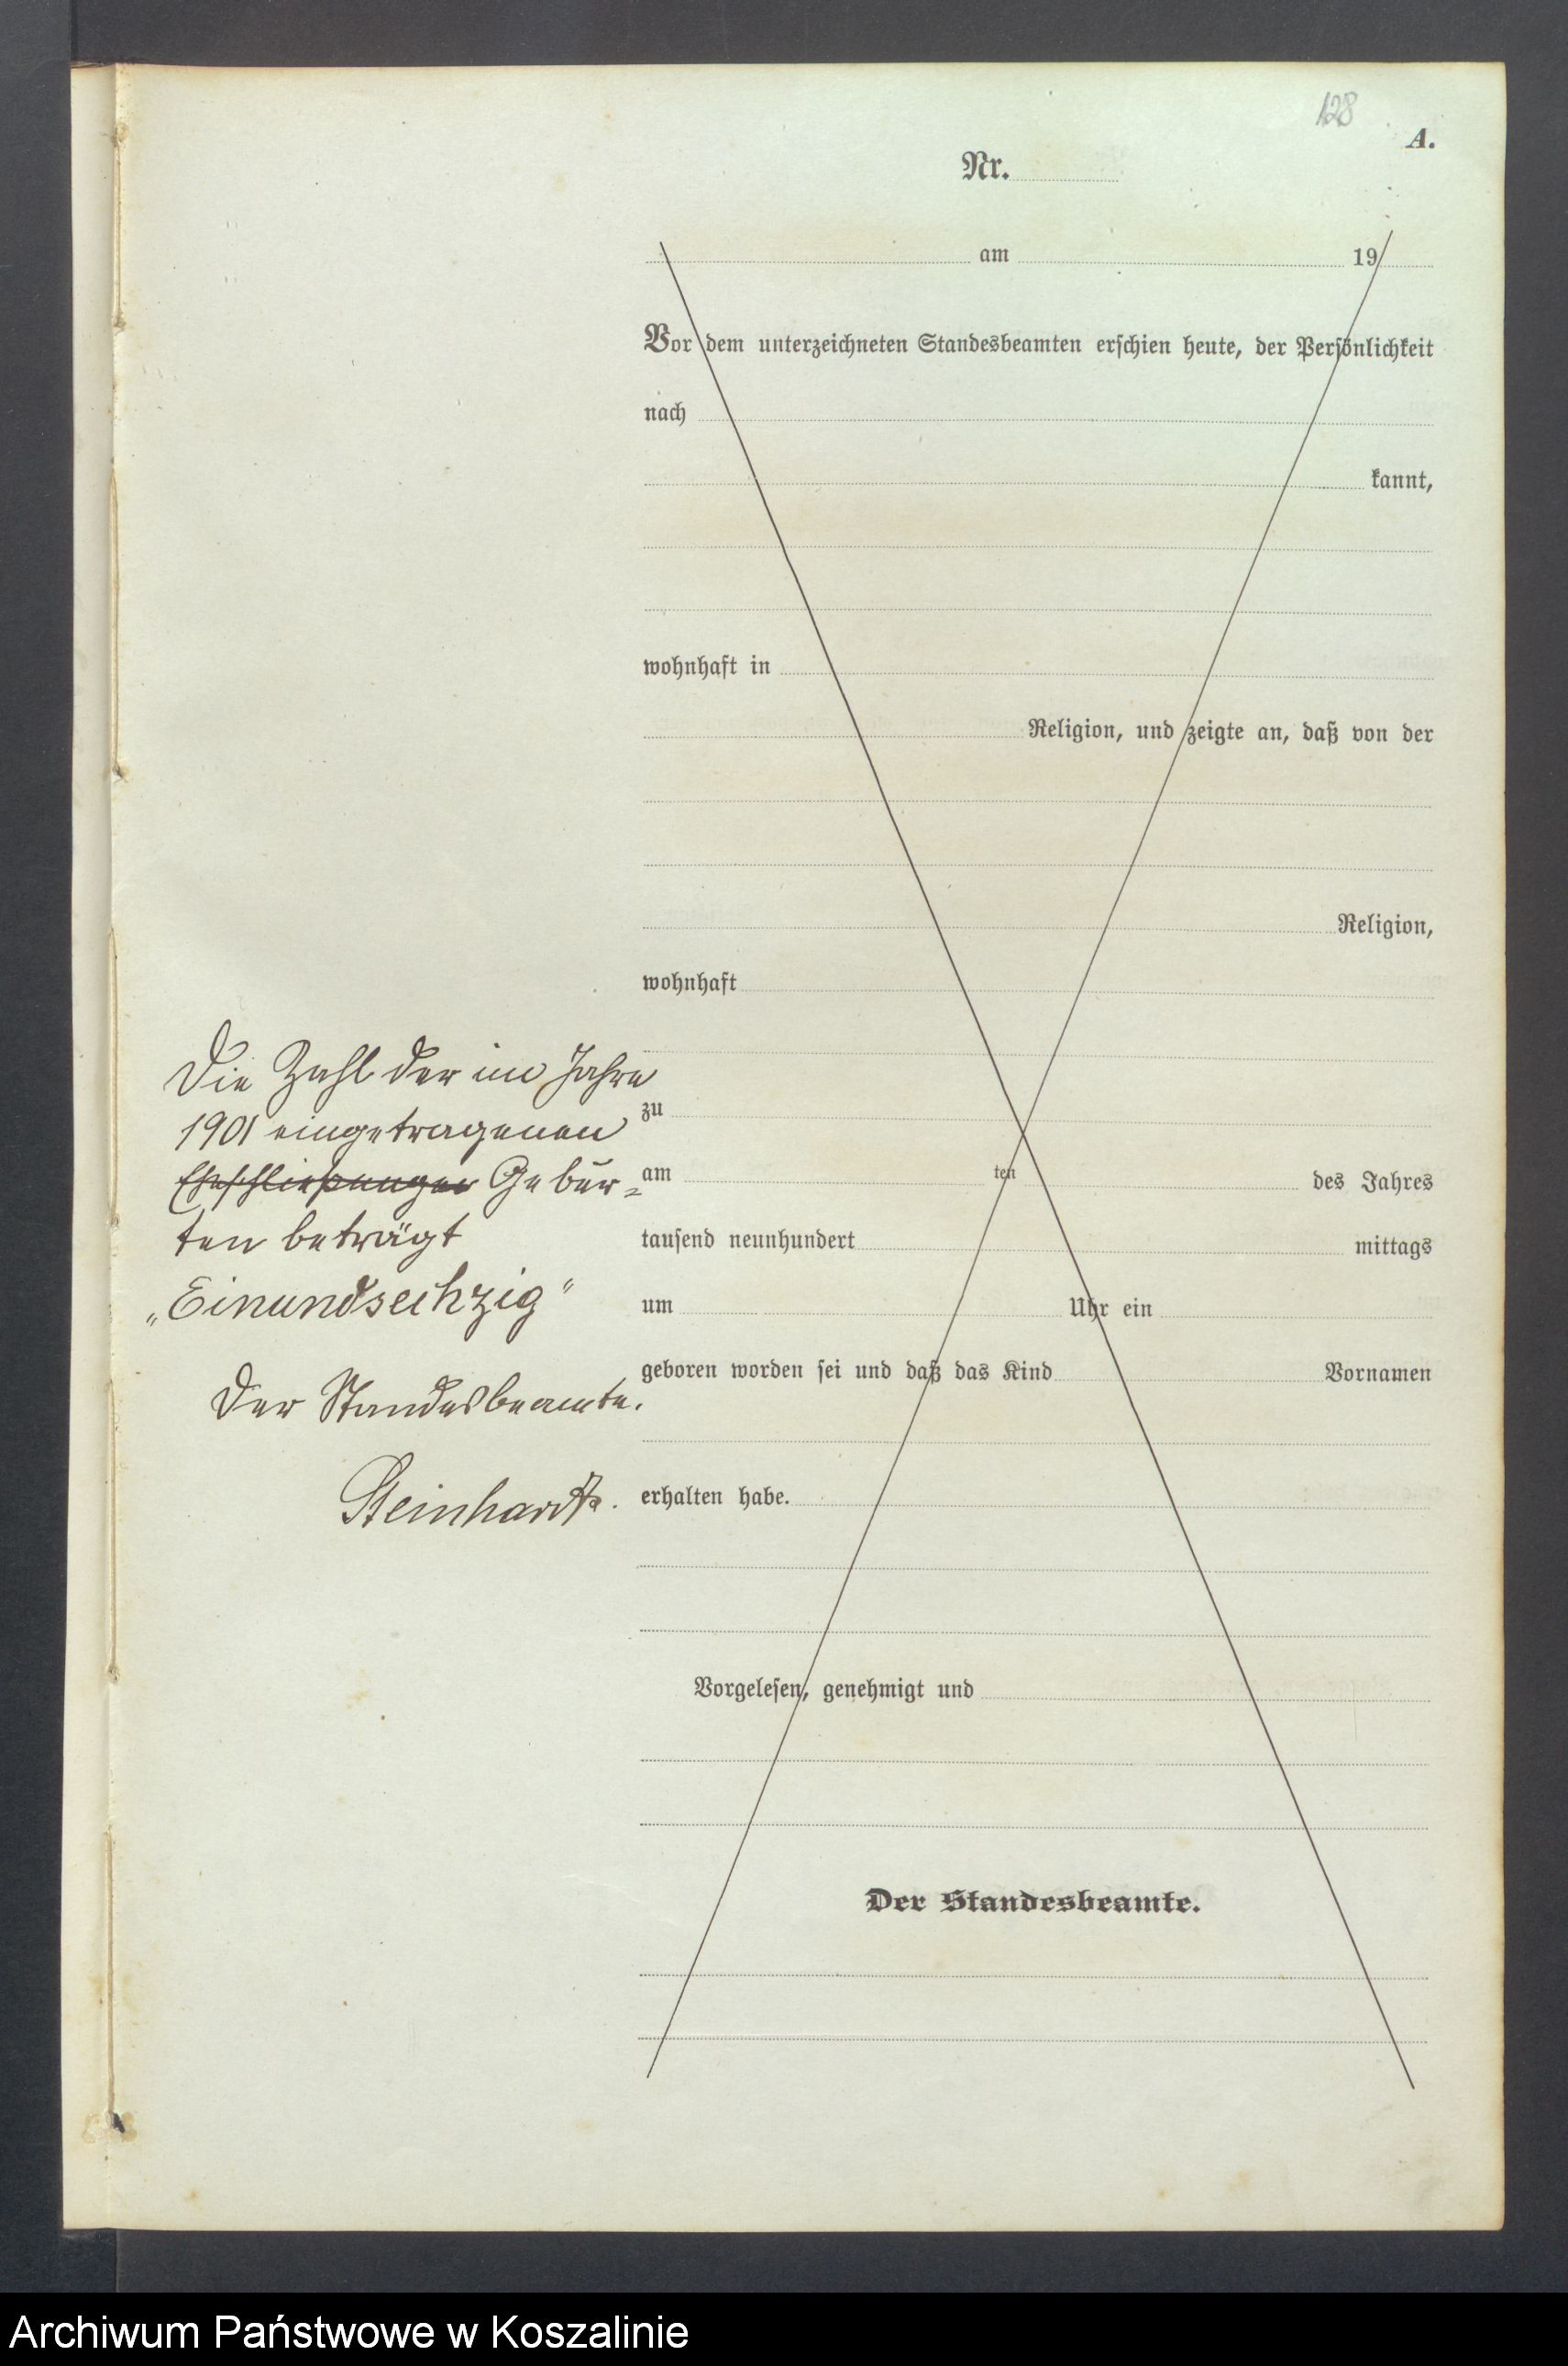 128
A.
Nr.
am 19
Vor dem unterzeichneten Standesbeamten erschien heute, der Persönlichkeit
nach
kannt,
wohnhaft in
Religion, und zeigte an, daß von der
Religion,
wohnhaft
zu
am ten des Jahres
tausend neunhundert mittags
um Uhr ein
geboren worden sei und daß das Kind Vornamen
erhalten habe.
Vorgelesen, genehmigt und
Der Standesbeamte.
Die Zahl der im Jahre
1901 eingetragenen
Eheschließungen Gebur-
ten beträgt
„Einundsechzig"
Der Standesbeamte.
Steinhardt.
Archiwum Państwowe w Koszalinie